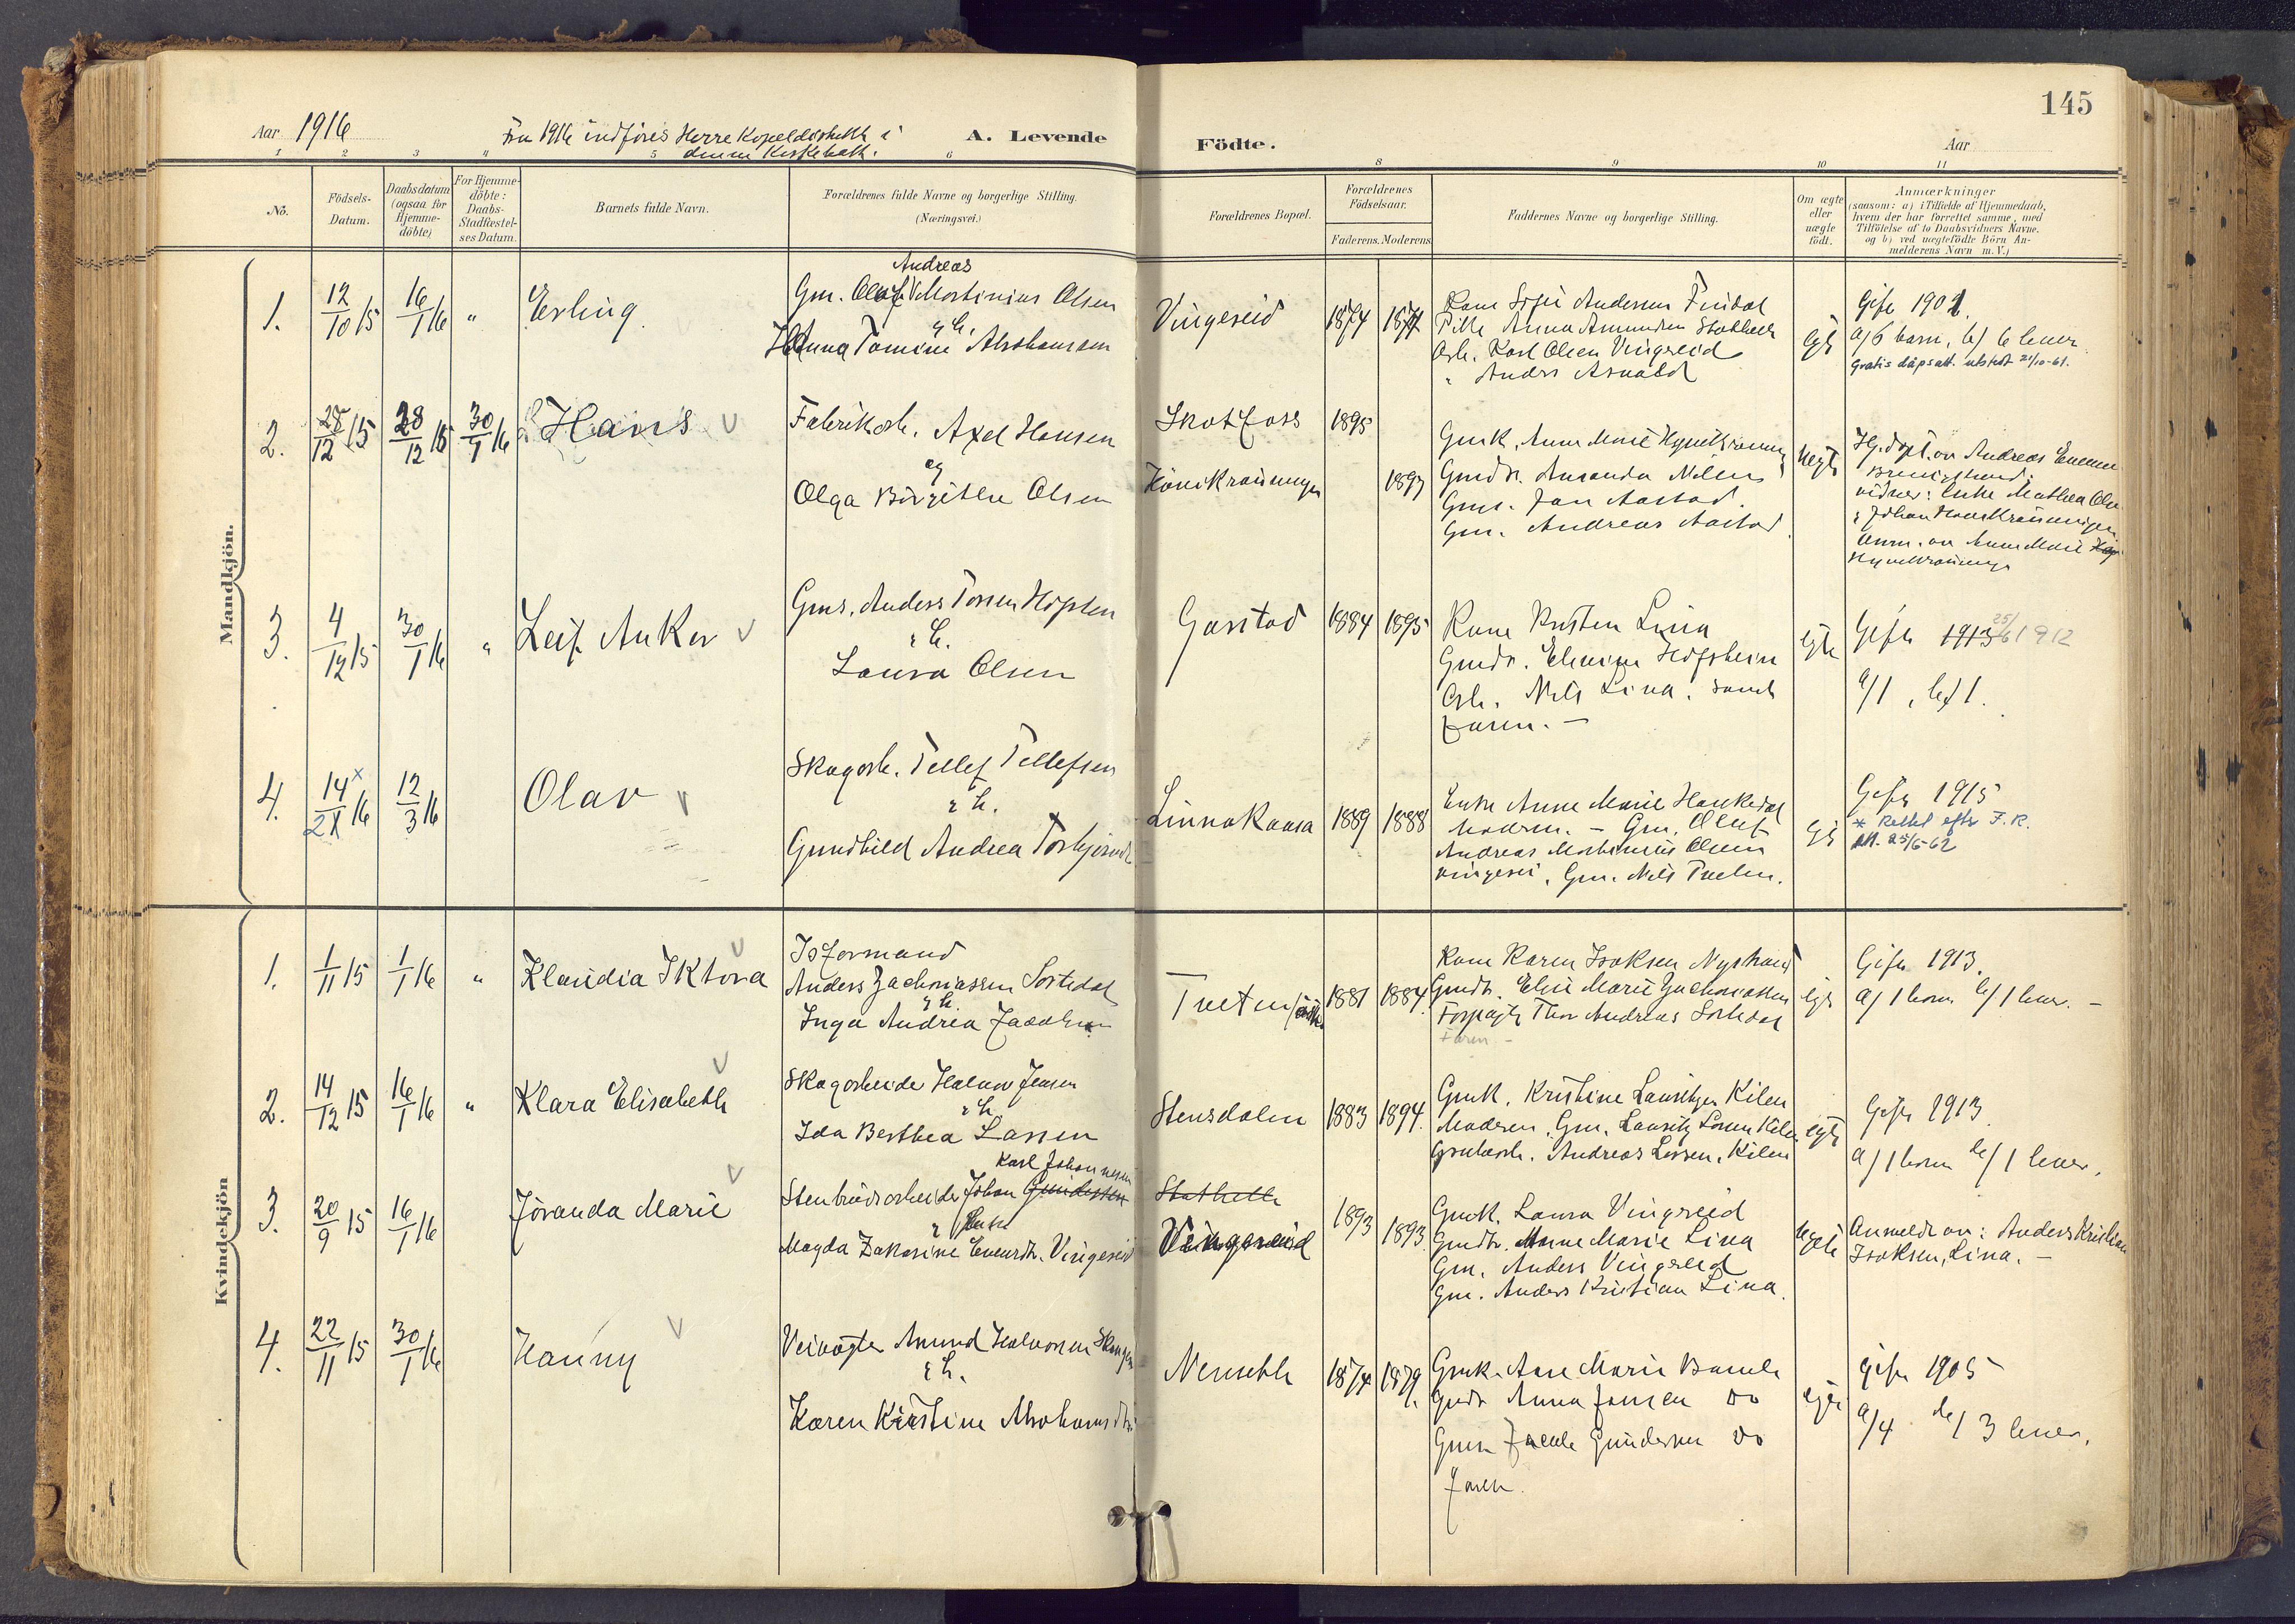 145
Aar 1916
Fra 1916 indføres Herre Kapeldistrikt i
denne Kirkebok.
A. Levende Födte.
Aar
1 2 3 4 5 6 8 9 10 11
No.
Födsels-
Datum.
Daabsdatum
(ogsaa for
Hjemme-
döbte)
For Hjemme-
döbte:
Daabs-
Stadfæstel-
ses Datum.
Barnets fulde Navn.
Forældrenes fulde Navne og borgerlige Stilling.
(Næringsvei.)
Forældrenes Bopæl.
Forældrenes
Födselsaar.
Faderens. Moderens.
Faddernes Navne og borgerlige Stilling.
Om ægte
eller
uægte
födt.
Anmærkninger
(saasom: a) i Tilfælde af Hjemmedaab,
hvem der har forrettet samme, med
Tilföielse af to Daabsvidners Navne.
og b) ved uægtefödte Börn An-
melderens Navn m. V.)
Mandkjön.
1. 12/10 15 16/1 16 " Erling.
Andreas
Gm. Olaf Martinius Olsen
& h.
Hanna Tomine Abrahamsen
Vingereid 1874 1877
Anna Amundsen
Arb. Karl Olsen Vingreid
" Anders
Egte
Gift 1902
a/ 6 barn, b/ 6 lever
Gratis dåpsatt. utstedt 21/10-61.
2. 28/12 15 28/12 15 30/1 16 Hans
Fabrikarb. Axel Hansen
og
Olga Birgithe Olsen
Skotfoss 1895
1893
Gmk. Anne Marie
Gmdtr. Amanda Nilsen
Gms. Jan Aastad.
Gm. Andreas Aastad.
Uegte
Hj.døpt. av Andreas
vidner: Enke Mathea Olsen
Anm. av Anne Marie
3. 4/12 15 30/1 16 " Leif Anker
Gms. Anders Tossen
& h.
Laura Olsen
Gastad 1884 1895
Kone Kirsten Lina
Gmdtr. Elmine
Arb. Nils Lina. samt
faren. —
Egte
Gift 1913 25/6 1912
a/ 1, b/ 1.
4. 14 x/21 16 12/3 16 Olav
Skogarb. Tellef Tellefsen
& h.
Gunhild Andrea
Linnakaasa 1889 1888
Enke Anne Marie Haukedal
Moderen. — Gm. Oluf
Andreas Martinius Olsen
Vingerei, Gm. Nils Tveten.
Egte
Gift 1915
* Rettet efter F.R.
25/6-62
Kvindekjön
1. 1/11 15 1/1 16 " Klaudia Iktora
Isformand
Anders Zachariassen Sortedal
& h.
Inga Andrea Jacobsen
Tveten 1881 1884.
Kone Karen Isaksen
Gmdtr. Elise Marie Zachariassen
Forpagter Thor Andreas Sortedal
Faren —
Egte
Gift 1913.
a/ 1 barn b/ 1 lever. —
2. 14/12 15 16/1 16 " Klara Elisabeth
Skogarbeider Halvor Jensen
& h.
Ida Berthea Larsen
Stensdalen 1883 1894.
Gmk. Kristine Lauritzen Kilen
Moderen. Gm. Lauritz Larsen Kilen
Andreas Larsen, Kilen
Egte
Gift 1913
a/ 1 barn b/ 1 lever.
3. 20/9 15 16/1 16 Jøranda Marie
Karl Johannesen
Stenbrudsarbeider Johan Gundersen
&
Magda Zakarine Vingereid
Stathelle
Vingereid
1893 1893.
Gmk. Laura Vingreid
Gmdtr. Anne Marie Lina
Gm. Anders Vingreid
Gm. Anders Kristian Lina.
Uegte
Anmeldt av: Anders Kristian
Isaksen, Lina. —
4. 22/11 15 30/1 16 Hanny
Veivogter Amund Halvorsen
& h.
Karen Kirstine Abrahamsdtr.
Nenseth 1874 1879.
Gmk. Ane Marie Bamle
Gmdtr. Anna Jensen do
Gundersen do
faren.
Egte
Gift 1905
a/ 4 b/ 3 lever.